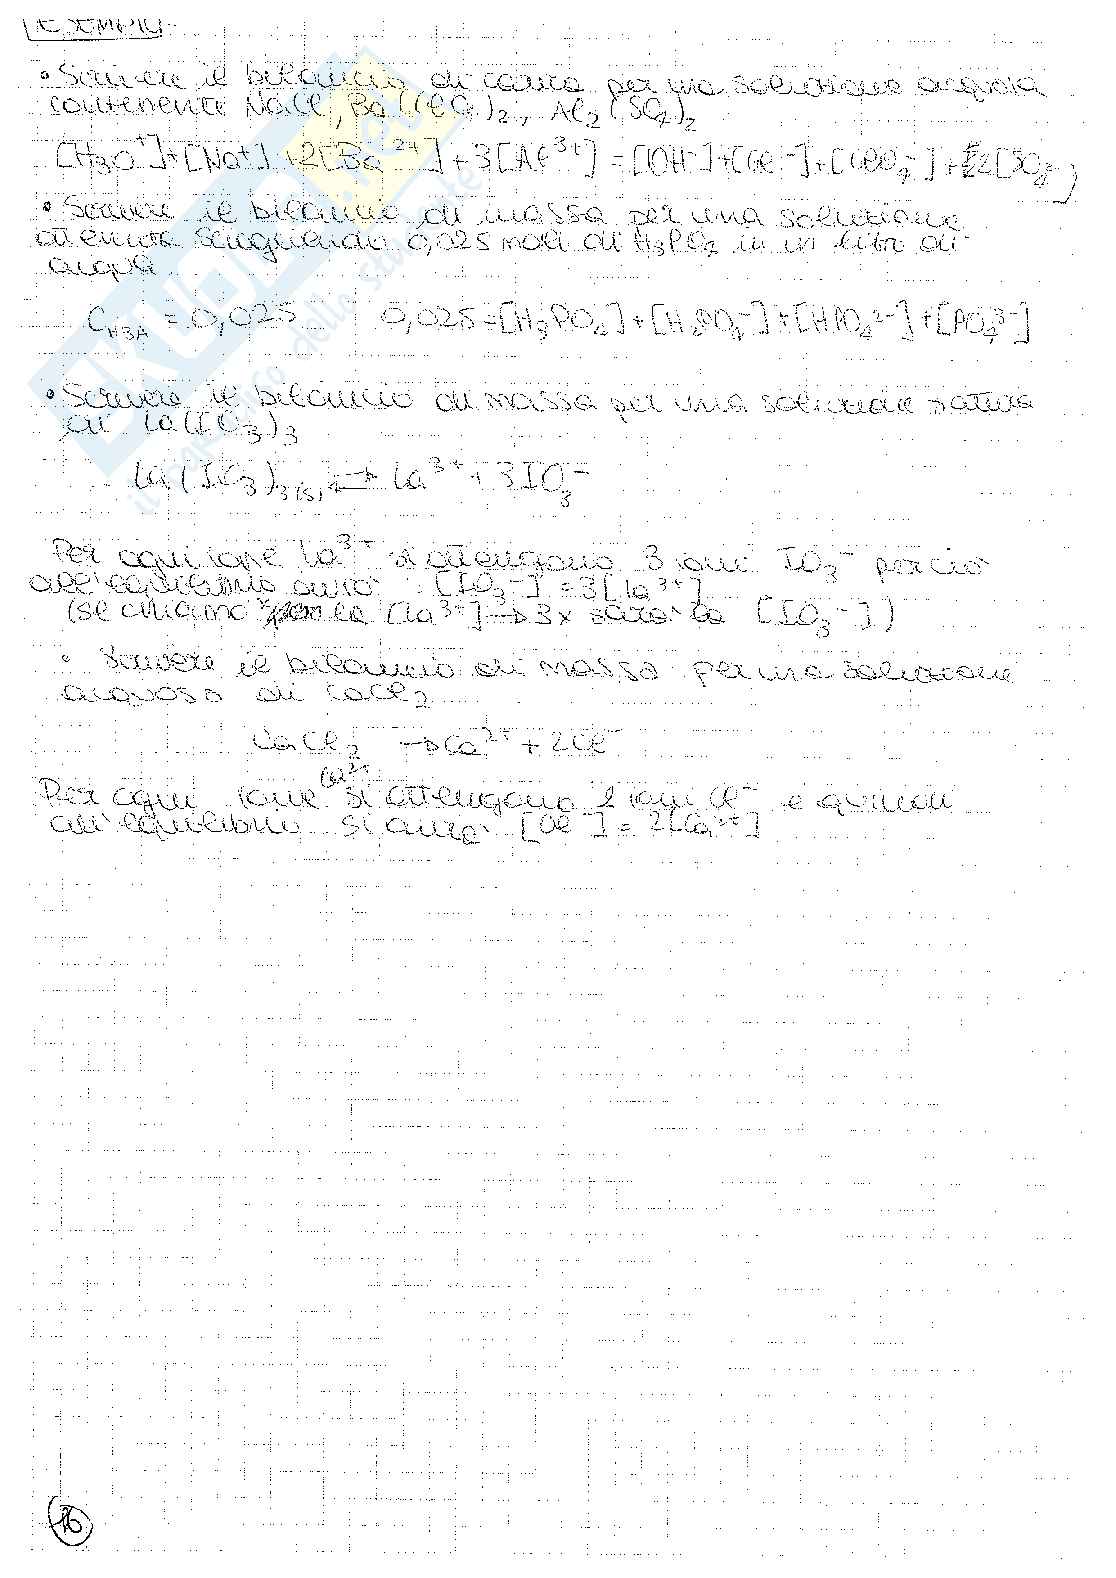 ESEMPIO
• Scrivere il bilancio di carica per una soluzione acquosa
contenente NaCl, Ba(ClO4)2, Al2(SO4)2
[H3O+]+[Na+]+2[Ba2+]+3[Al3+]=[OH-]+[Cl-]+[ClO4-]+2[SO4
• Scrivere il bilancio di massa per una soluzione
ottenuta sciogliendo 0,025 moli di H3PO4 in un litro di
acqua
CH3A = 0,025 0,025=[H3PO4]+[H2PO4-]+[HPO42-]+[PO43-]
• Scrivere il bilancio di massa per una soluzione satura
di La(IO3)3
La(IO3)3(s) ⇄ La3+ + 3IO3-
Per ogni ione La3+ si ottengono 3 ioni IO3- perciò
all'equilibrio avrò: [IO3-]=3[La3+]
(se chiamo la [La3+] → 3x sarà la [IO3-])
• Scrivere il bilancio di massa per una soluzione
acquosa di CaCl2
CaCl2 → Ca2+ + 2Cl-
Per ogni ione Ca2+ si ottengono 2 ioni Cl- e quindi
all'equilibrio si avrà [Cl-]=2[Ca2+]
16
SKUOLA.net
il paradiso dello studente